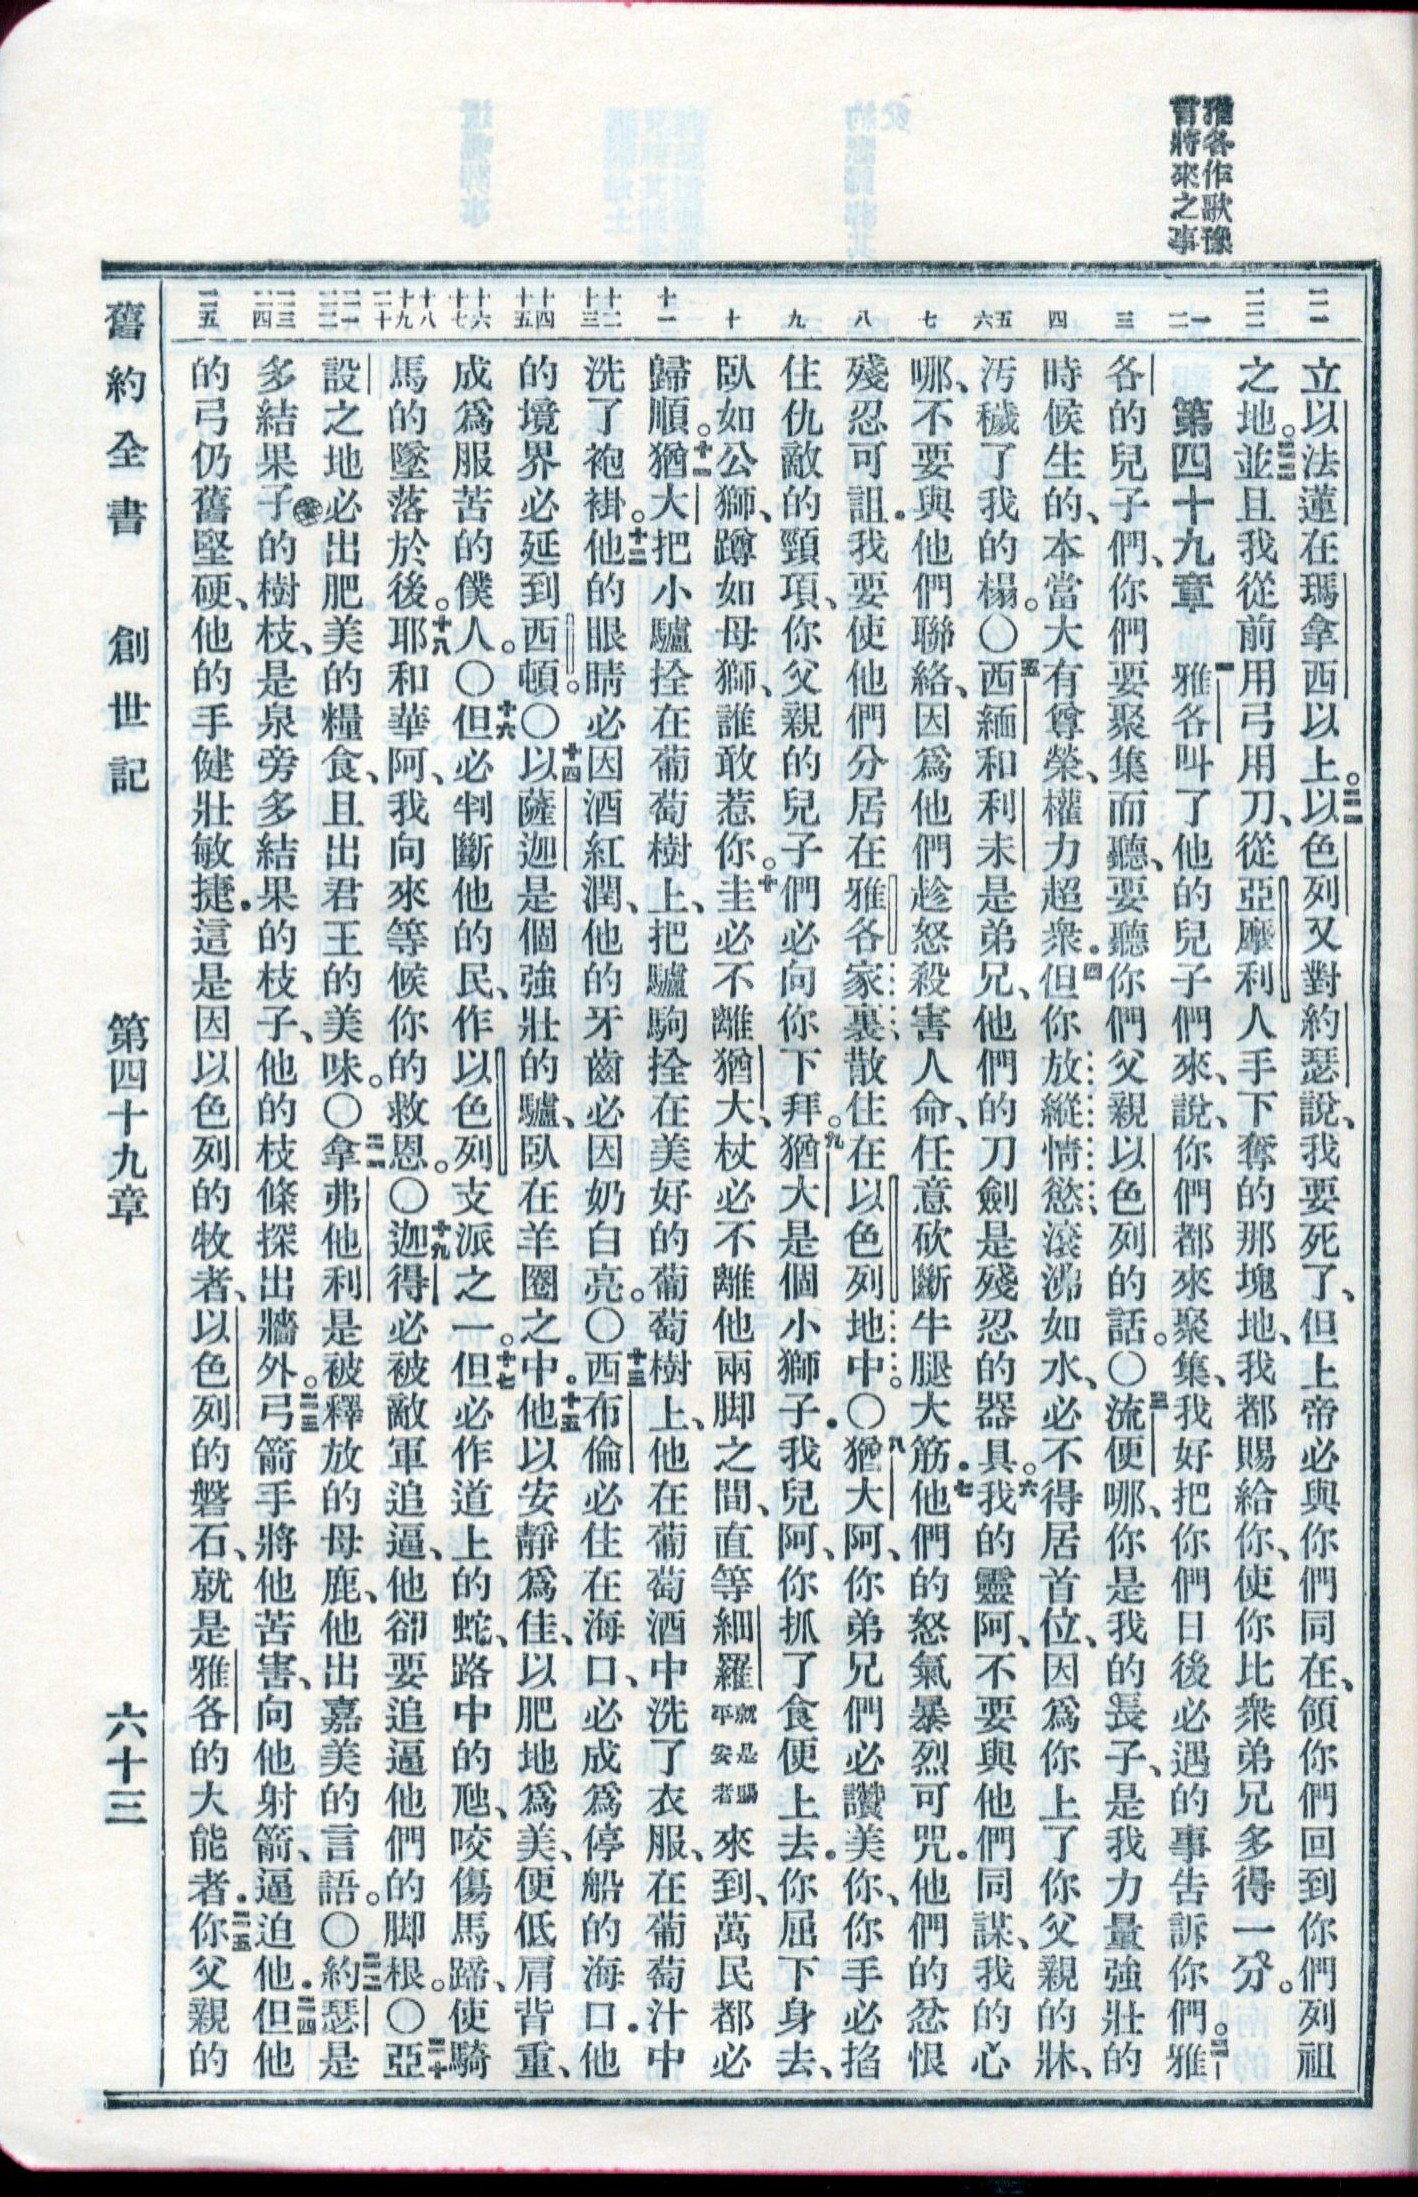 雅各作歌豫
言將來之事
二一
二二
一
二
三
四
五
六
七
八
九
十
十一
十二
十三
十四
十五
十六
十七
十八
十九
二十
二一
二二
二三
二四
二五
立以法蓮在瑪拿西以上。二一以色列又對約瑟說、我要死了、但上帝必與你們同在、領你們回到你們列祖
之地。二二並且我從前用弓用刀、從亞摩利人手下奪的那塊地、我都賜給你、使你比衆弟兄多得一分。
第四十九章　一雅各叫了他的兒子們來、說、你們都來聚集、我好把你們日後必遇的事告訴你們。二雅
各的兒子們、你們要聚集而聽、要聽你們父親以色列的話。〇三流便哪、你是我的長子、是我力量強壯的
時候生的、本當大有尊榮、權力超衆．四但你放縱情慾、滾沸如水、必不得居首位、因爲你上了你父親的牀、
汚穢了我的榻。〇五西緬和利未是弟兄、他們的刀劍是殘忍的器具。六我的靈阿、不要與他們同謀、我的心
哪、不要與他們聯絡、因爲他們趁怒殺害人命、任意砍斷牛腿大筋．七他們的怒氣暴烈可咒．他們的忿恨
殘忍可詛．我要使他們分居在雅各家裏、散住在以色列地中。〇八猶大阿、你弟兄們必讚美你、你手必掐
住仇敵的頸項、你父親的兒子們必向你下拜。九猶大是個小獅子．我兒阿、你抓了食便上去．你屈下身去、
臥如公獅、蹲如母獅、誰敢惹你。十圭必不離猶大、杖必不離他兩脚之間、直等細羅就是賜平安者來到、萬民都必
歸順。十一猶大把小驢拴在葡萄樹上、把驢駒拴在美好的葡萄樹上、他在葡萄酒中洗了衣服、在葡萄汁中
洗了袍褂。十二他的眼睛必因酒紅潤、他的牙齒必因奶白亮。〇十三西布倫必住在海口、必成爲停船的海口．他
的境界必延到西頓。〇十四以薩迦是個強壯的驢、臥在羊圈之中．十五他以安靜爲佳、以肥地爲美、便低肩背重、
成爲服苦的僕人。〇十六但必判斷他的民、作以色列支派之一。十七但必作道上的蛇、路中的虺、咬傷馬蹄、使騎
馬的墜落於後。十八耶和華阿、我向來等候你的救恩。〇十九迦得必被敵軍追逼、他卻要追逼他們的脚根。〇二十亞
設之地必出肥美的糧食、且出君王的美味。〇二一拿弗他利是被釋放的母鹿、他出嘉美的言語。〇二二約瑟是
多結果子的樹枝、是泉旁多結果的枝子、他的枝條探出牆外。二三弓箭手將他苦害、向他射箭、逼迫他．二四但他
的弓仍舊堅硬、他的手健壯敏捷．這是因以色列的牧者、以色列的磐石、就是雅各的大能者．二五你父親的
舊約全書　創世記　第四十九章　六十三